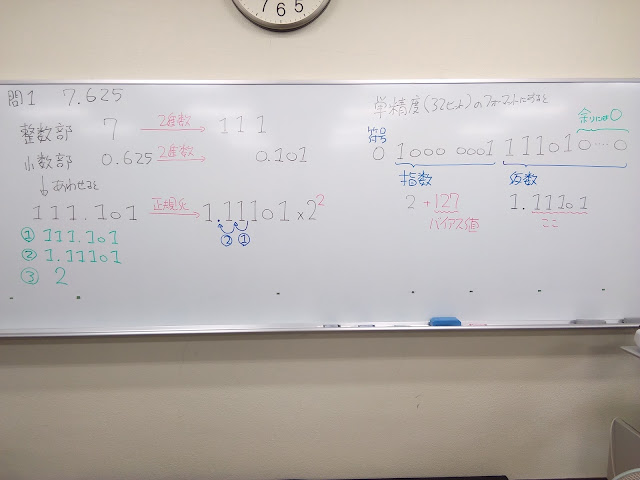 7 6 5
問1 7.625
整数部 7 2進数 → 111
小数部 0.625 2進数 → 0.101
↓あわせると
111.101 正規化 → 1.11101×2²
② ①
① 111.101
② 1.11101
③ 2
単精度(32ビット)のフォーマットにすると
余りには0
符号
0 1000 0001 111010 0‥‥0
指数 仮数
2 +127 1.11101
バイアス値 ここ